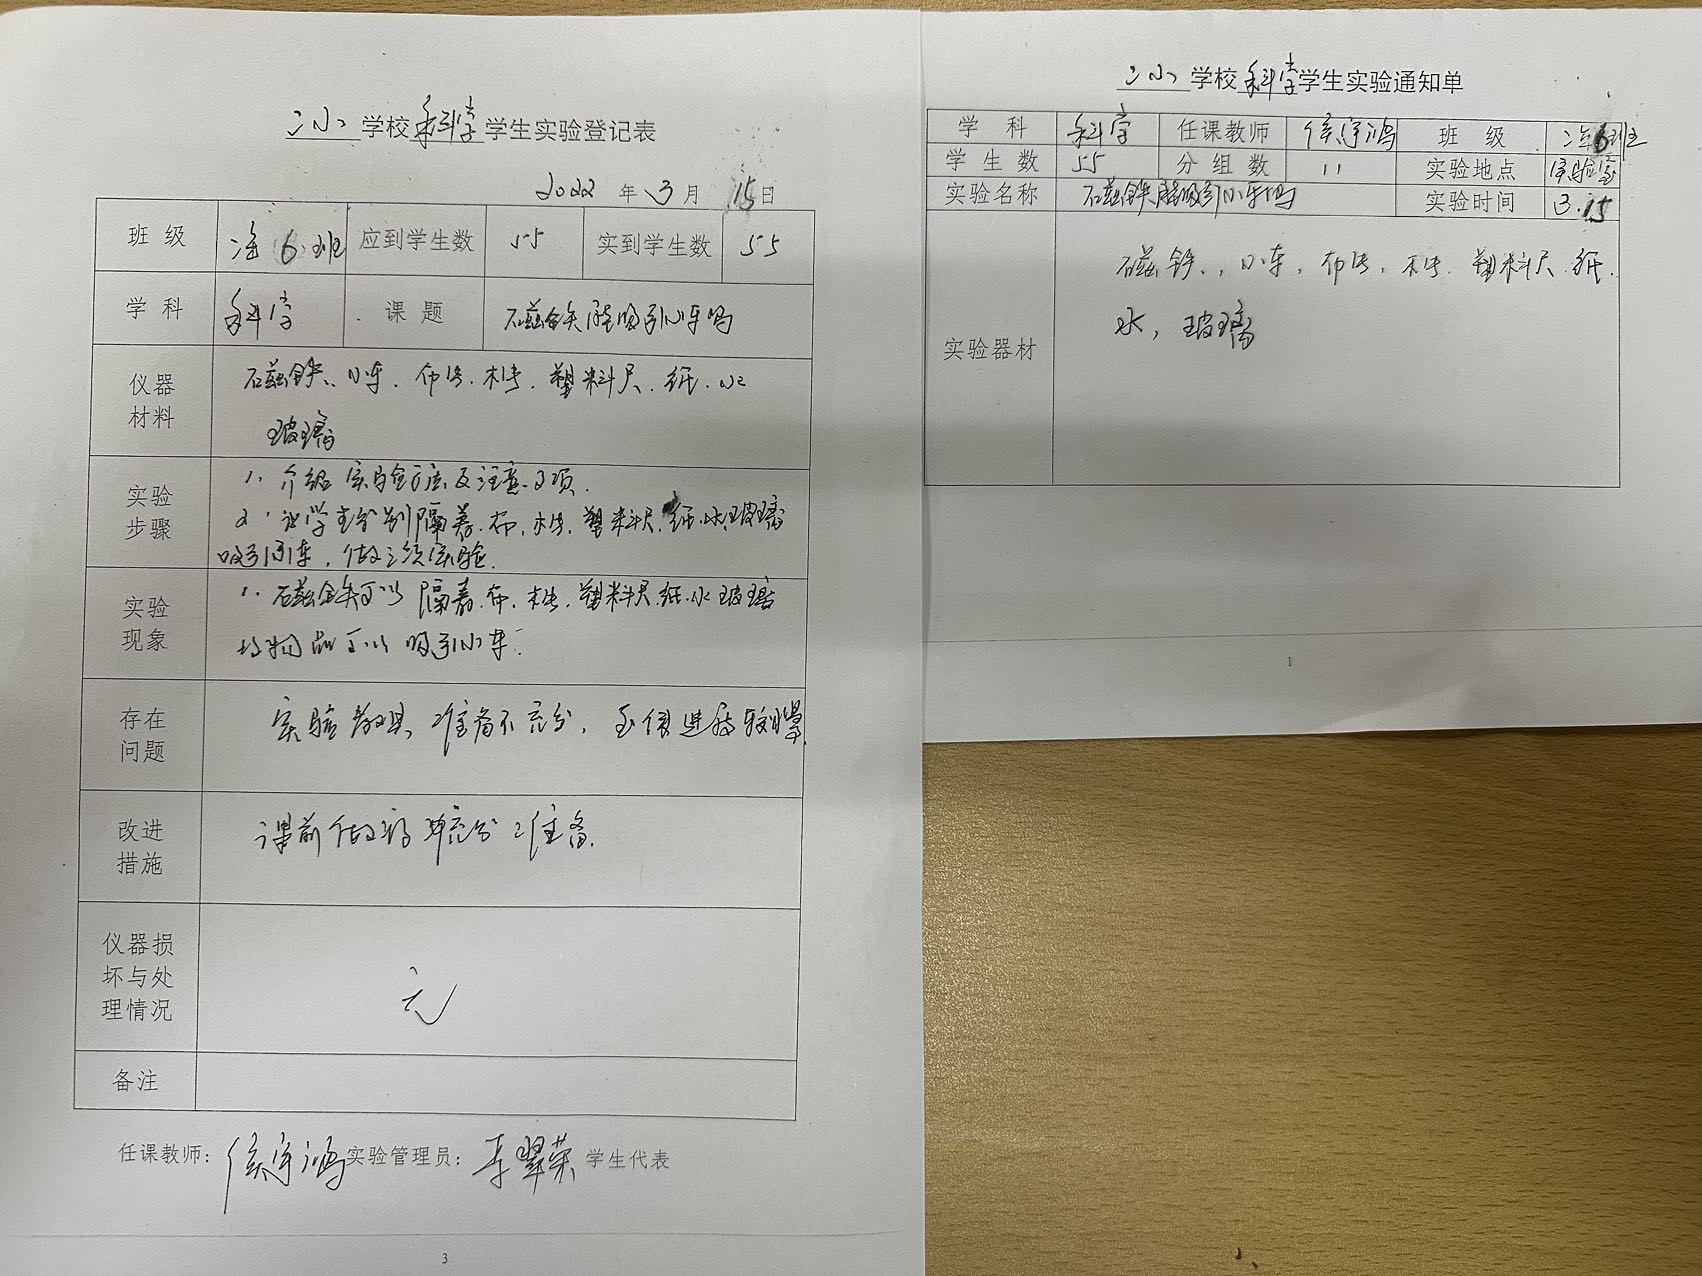 三小 学校 科学 学生实验登记表
2022 年 3 月 15 日
班级 6班 应到学生数 55 实到学生数 55
学科 科学 课题 磁铁能吸引小车吗
仪器材料 磁铁、小车、布片、木片、塑料尺、纸、水
玻璃
实验步骤 1. 介绍实验方法及注意事项.
2. 让学生分别隔着布,木片,塑料尺,纸,水,玻璃
吸引小车,做三次实验.
实验现象 1. 磁铁可以隔着布,木片,塑料尺.纸.水玻璃
物品可以吸引小车.
存在问题 实验教具准备不充分,至使进程较慢.
改进措施 课前做好充分准备.
仪器损坏与处理情况 无
备注
任课教师: 侯宇鸿 实验管理员: 李翠荣 学生代表
3
三小 学校 科学 学生实验通知单
学科 科学 任课教师 侯宇鸿 班级 6班
学生数 55 分组数 11 实验地点 实验室
实验名称 磁铁能吸引小车吗 实验时间 3.15
实验器材 磁铁,小车,布片,木片,塑料尺,纸.
水,玻璃
1